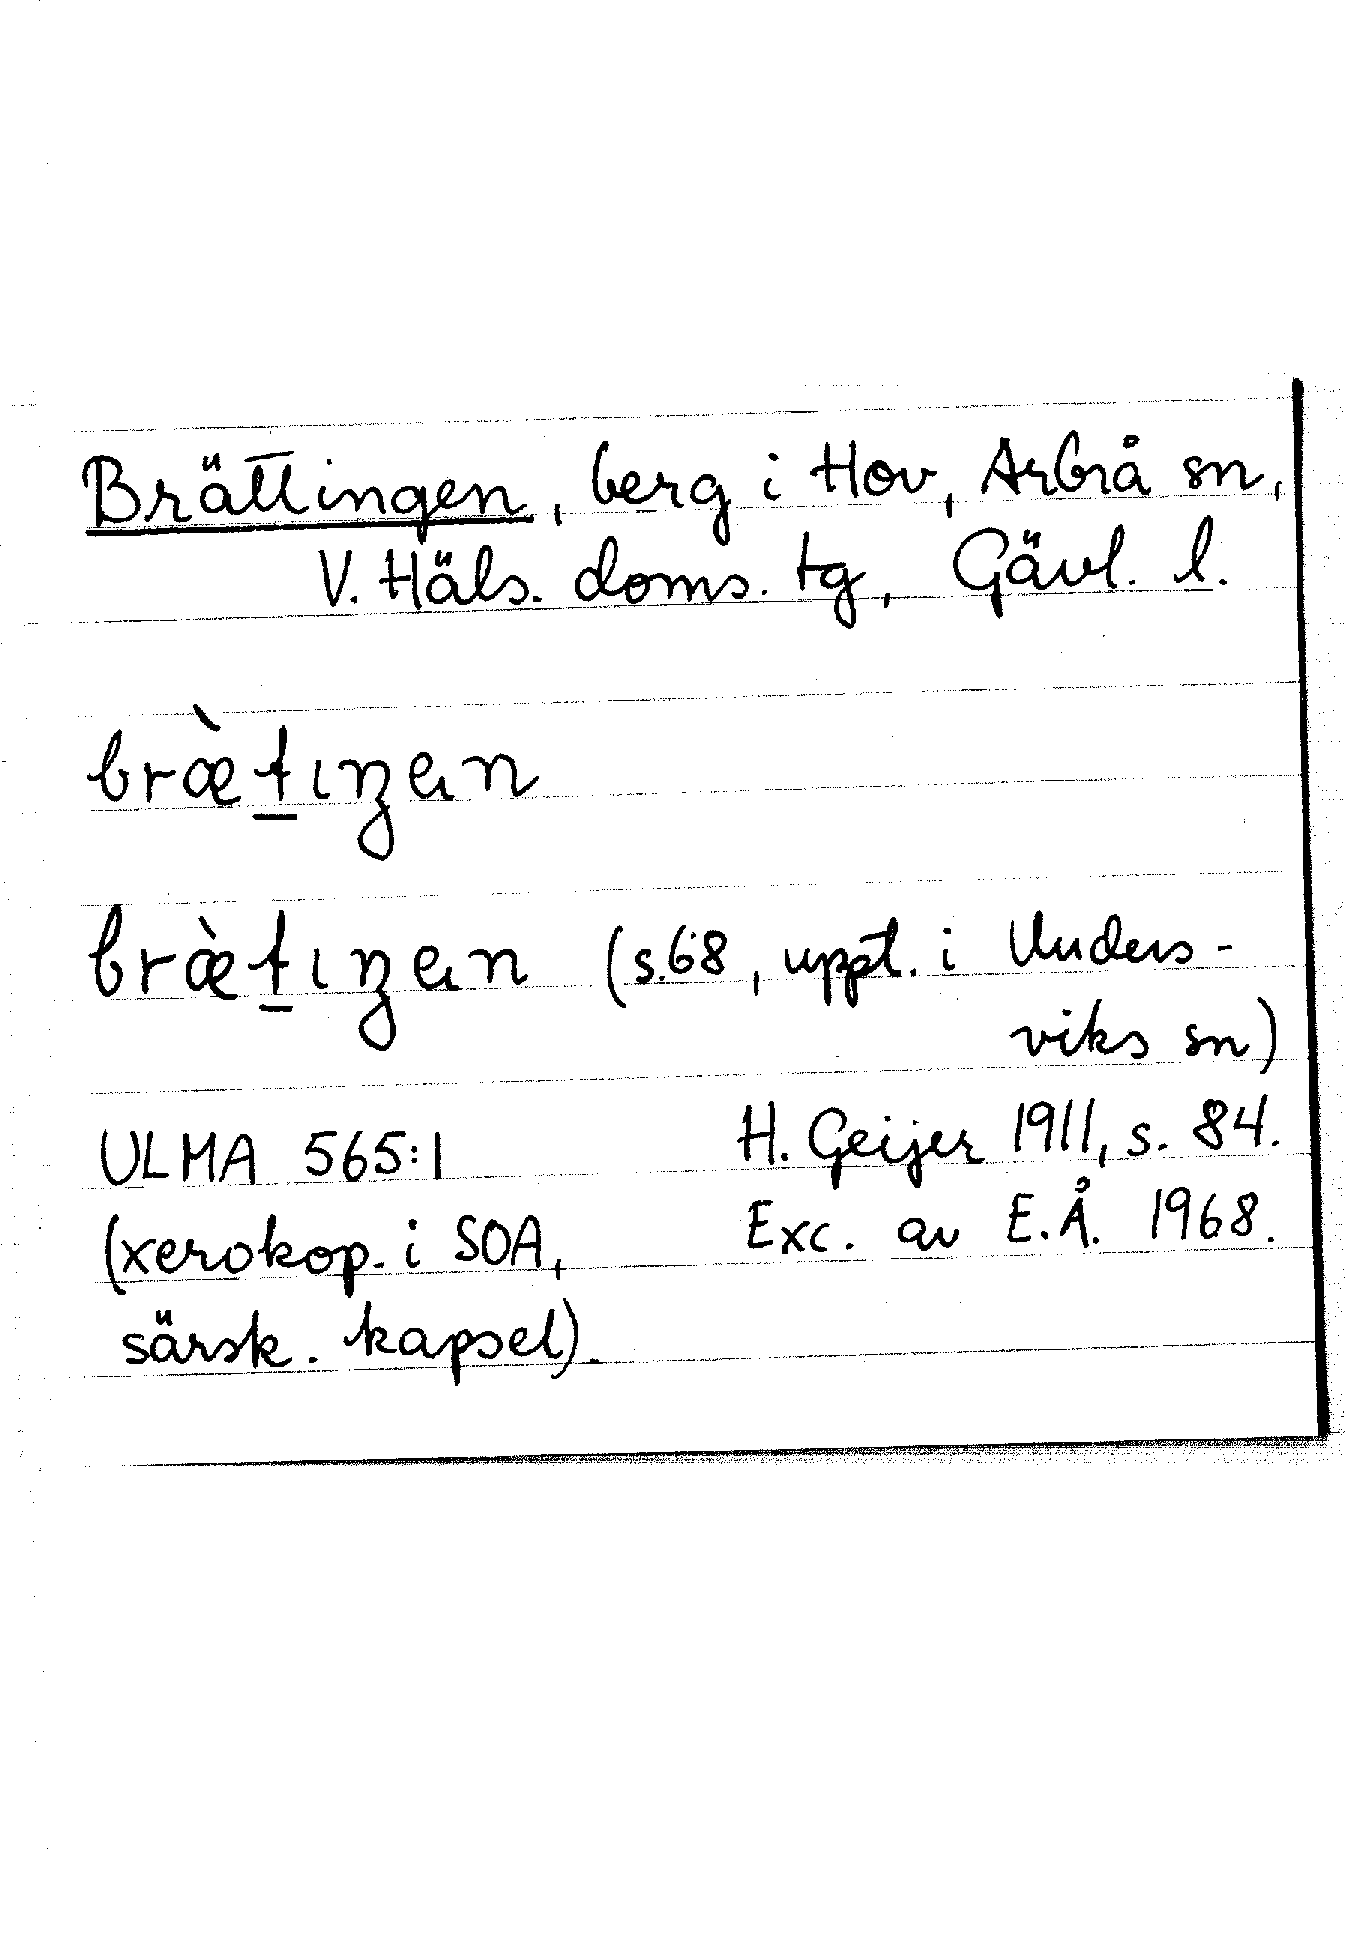 Brättingen, berg i Hov, Arbrå sn,
V. Häls. doms. tg, Gävl. l.
bræ̀t̲ıŋen
bræ̀t̲ıŋen (s.68, uppt. i Unders-
viks sn)
ULMA 565:1 H. Geijer 1911, s. 84.
(xerokop. i SOA, Exc. av E.Å. 1968.
särsk. kapsel).